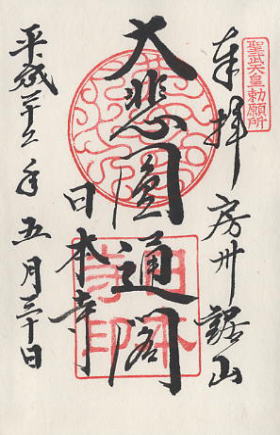 聖武天皇勅願所
奉拝 房州 鋸山
大悲圓通閣
日本寺
平成廿二年五月三十日
日本寺印